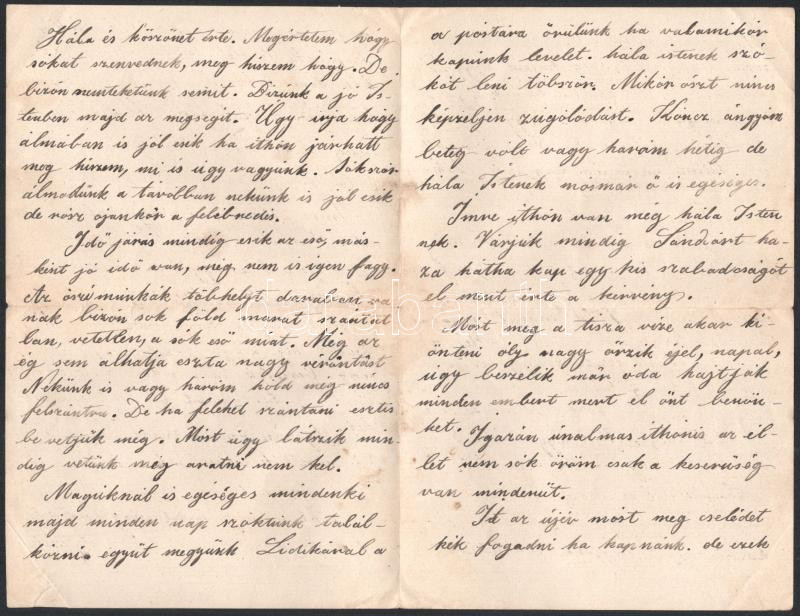 Hála és köszönet érte. Megértetem hogy
sokat szenvednek, meg hiszem hogy. De
bizón nemtehetünk semit. Bizúnk a jó Is-
tenben majd az megsegit. Úgy irja hogy
álmában is jól esik ha ithón járhatt
meg hiszem, mi is úgy vagyúnk. Sókszór
álmodúnk a távólban nekúnk is jól esik
de rósz ojankór a felébredés.
Idő járás mindég esik az eső, más-
ként jó idő van, még nem is igen fagy.
Az őszi munkák töb helyt darabban va
nak bizón sok föld marat szántat
ban, vetetlen, a sók eső miat. Még az
ég sem álhatja eszta nagy vérontást
Nékúnk is vagy három hóld meg nincs
felszántva. De ha felehet szántani esztis
be vetjük még. Móst úgy látszik min-
dég vetünk még aratni nem kel.
Magúknál is egéséges mindenki
majd minden nap szóktúnk talál-
kózni. együt megyünk Lidikával a
a póstára örülünk ha valamikór
kapunk levelet. hála istenek szó-
kót leni töbször. Mikór ószt nincs
képzeljen zugólódást. Kóncz ángyóm
beteg vólt vagy három hétig de
hála Istenek mósmár ő is egéséges.
Imre itthón van még hála Isten
nek. Várjúk mindég Sándórt ha-
za hátha kap egy kis szabadságót
el ment érte a kérvény.
Móst meg a tisza vize akar ki-
önteni óly nagy őrzik éjel, napal,
úgy beszélik már óda hajtják
minden embert mert el önt benün-
ket. Igazán únalmas ithónis az él-
let nem sók öröm csak a keserűség
van mindenüt.
Itt az újév móst meg cselédet
kék fogadni ha kapnánk. de ezek
darabanth